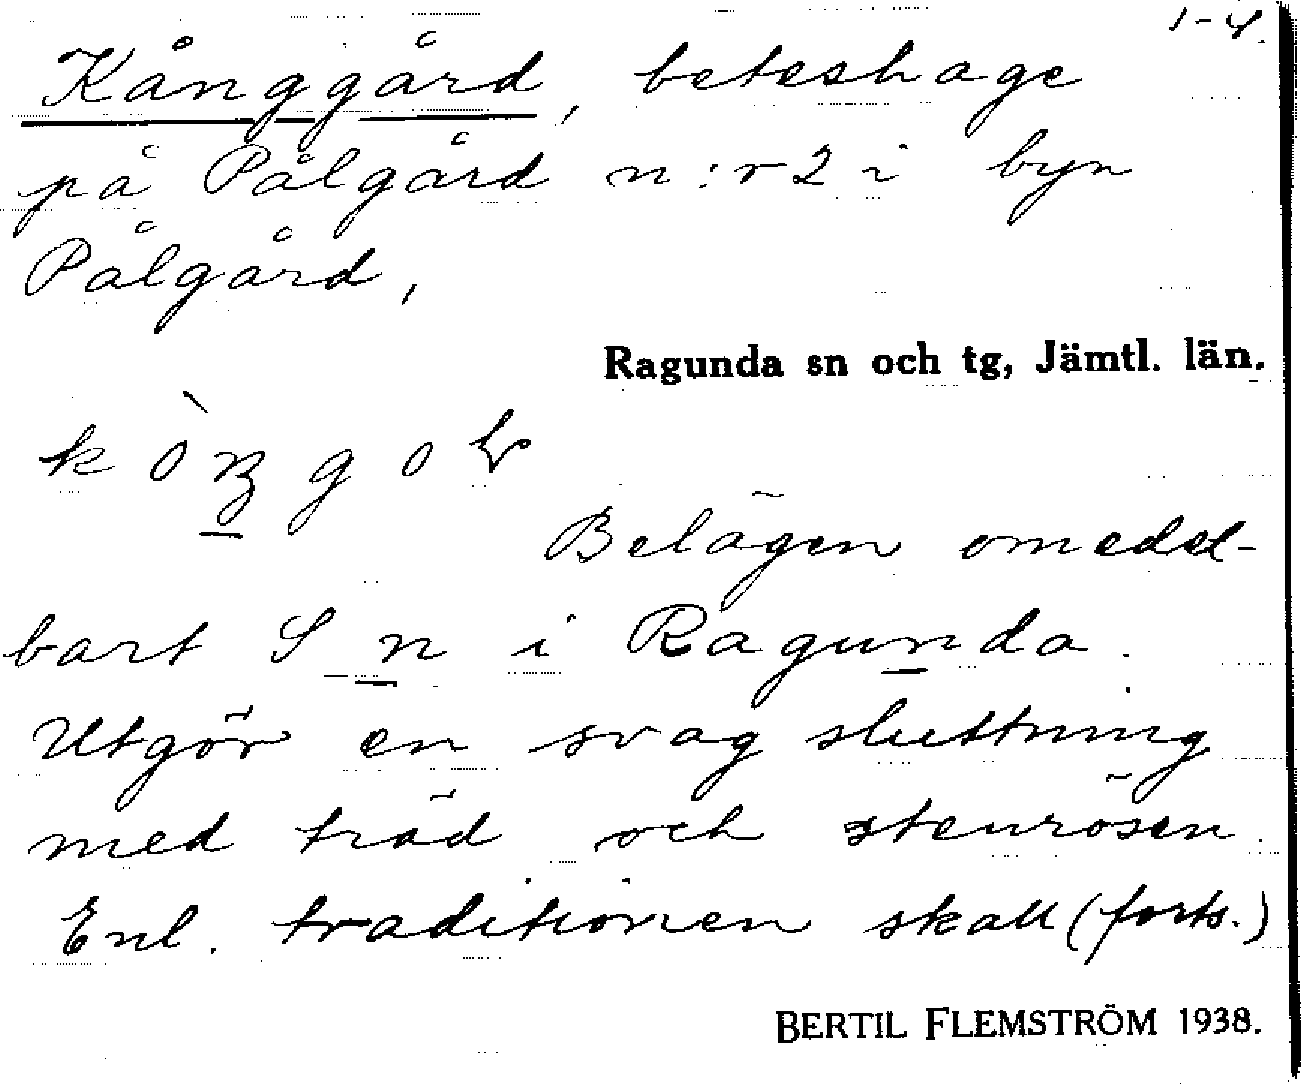 1-4.
Kånggård, beteshage
på Pålgård n:r 2 i byn
Pålgård,
Ragunda sn och tg, Jämtl. län.
Belägen omedel-
bart S n i Ragunda.
Utgör en svag sluttning
med träd och stenrösen.
Enl. traditionen skall (forts.)
BERTIL FLEMSTRÖM 1938.